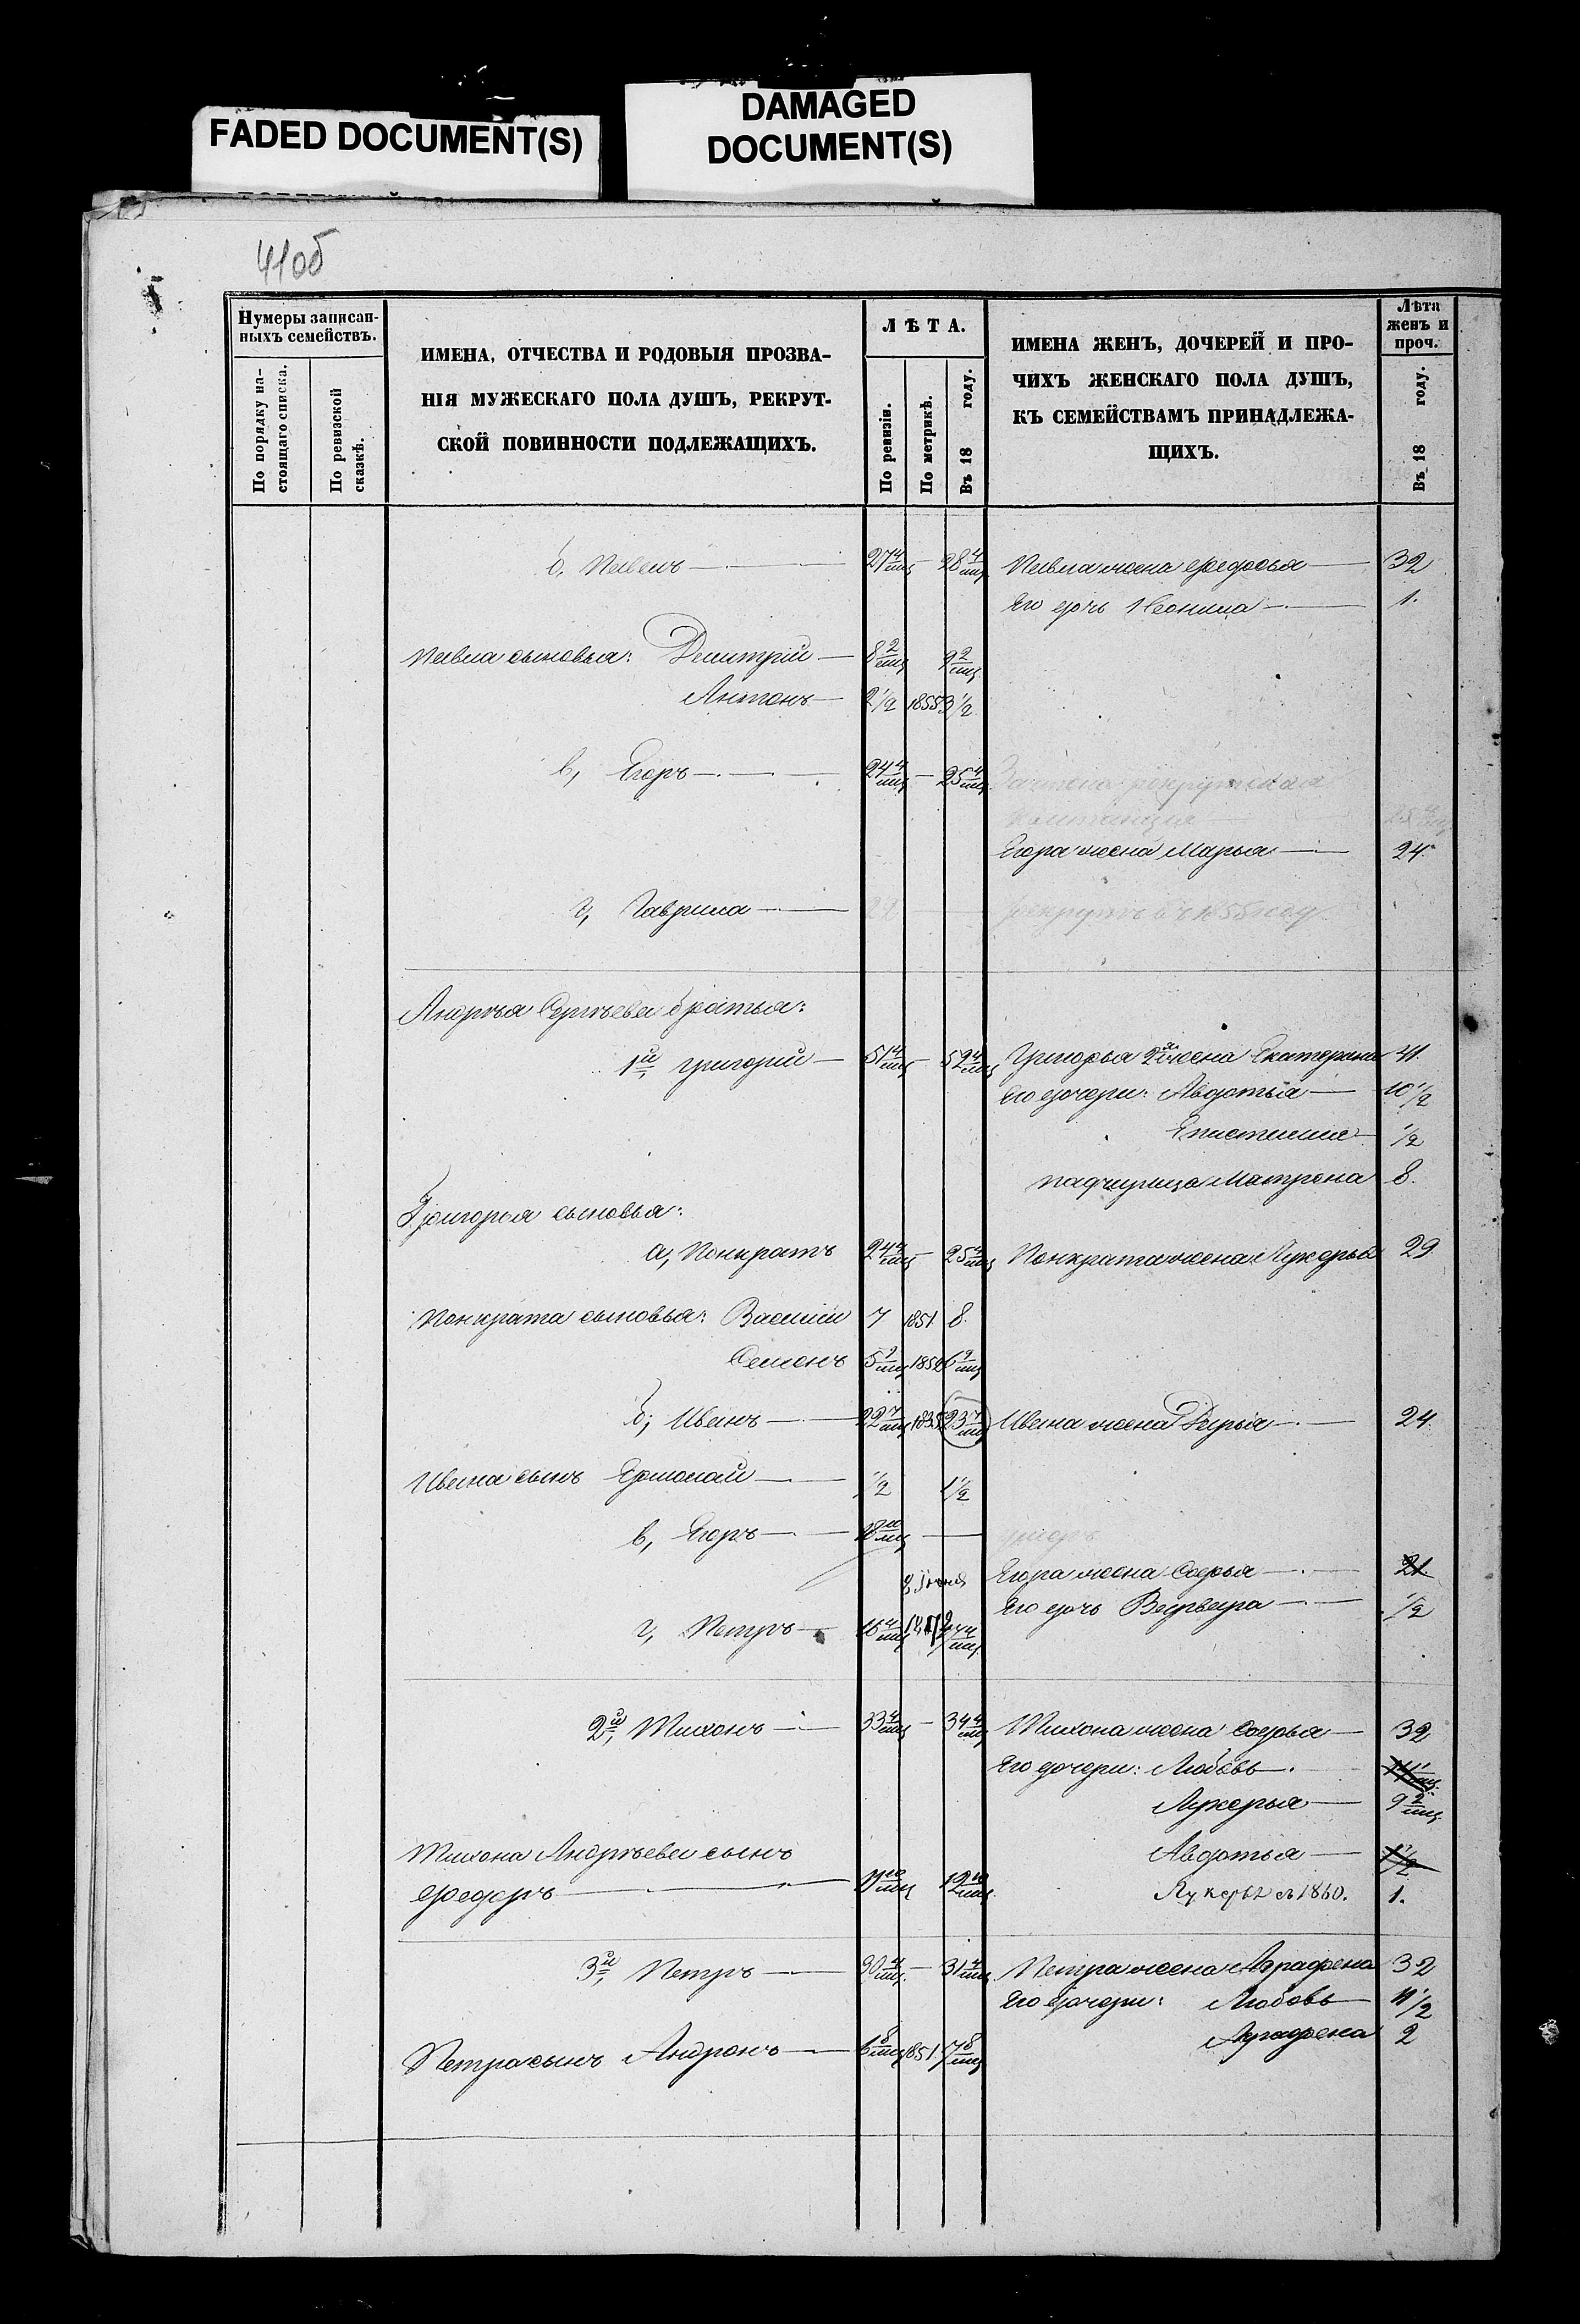 FADED DOCUMENT(S)
DAMAGED
DOCUMENT(S)
41об
Нумеры записан-
ныхъ семействъ.
По порядку на-
стоящаго списка.
По ревизской
сказкѣ.
ИМЕНА, ОТЧЕСТВА И РОДОВЫЯ ПРОЗВА-
НІЯ МУЖЕСКАГО ПОЛА ДУШЪ, РЕКРУТ-
СКОЙ ПОВИННОСТИ ПОДЛЕЖАЩИХЪ.
ЛѢТА.
По ревизіи.
По метрикѣ.
Въ 18 году.
ИМЕНА ЖЕНЪ, ДОЧЕРЕЙ И ПРО-
ЧИХЪ ЖЕНСКАГО ПОЛА ДУШЪ,
КЪ СЕМЕЙСТВАМЪ ПРИНАДЛЕЖА-
ЩИХЪ.
Лѣта
женъ и
проч.
Въ 18 году.
б, Павелъ — 27 4/мц — 28 4/мц Павла жена Федосья — 32
Его дочь Леонила — 1.
Павла сыновья: Димитрій — 8 2/мц 9 2/мц
Антонъ — 2 1/2 1855 3 1/2
в, Егоръ — 24 4/мц — 25 4/мц Зачтена рекрутская
квитанція
Егора жена Марья — 24.
г, Гаврила — 22 — рекрутъ въ 1855 году.
Андрѣя Сергѣева братья:
1й, Григорій — 51 4/мц — 52 4/мц Григорья 2я жена Екатерина 41.
Его дочери: Авдотья — 10 1/2
Епистимия — 1/2
падчерица Матрона 8.
Григорья сыновья:
а, Понкратъ 24 4/мц — 25 4/мц Понкрата жена Лукерья 29
Понкрата сыновья: Василій 7 1851 8.
Семенъ 5 9/мц 1852 6 9/мц
б, Иванъ — 22 7/мц 1835 23 7/мц Ивана жена Дарья — 24.
Ивана сынъ Ермолай — 1/2 1 1/2
в, Егоръ — 18 10/мц — умеръ
Егора жена Софья — 21
Его дочь Варвара — 1/2
г, Петръ — 16 4/мц
2й, Тихонъ — 33 4/мц — 34 4/мц Тихона жена Софья — 32
Его дочери: Любовь
Лукерья — 9 2/мц
Авдотья — 1 1/2
Тихона Андрѣева сынъ
Федоръ — 11 10/мц 12 10/мц Лукерья въ 1860. 1.
3й, Петръ — 30 4/мц — 31 4/мц Петра жена Аграфена 32
Его дочери: Любовь — 11 1/2
Аграфена 2
Петра сынъ Андронъ — 6 8/мц 1851 7 8/мц